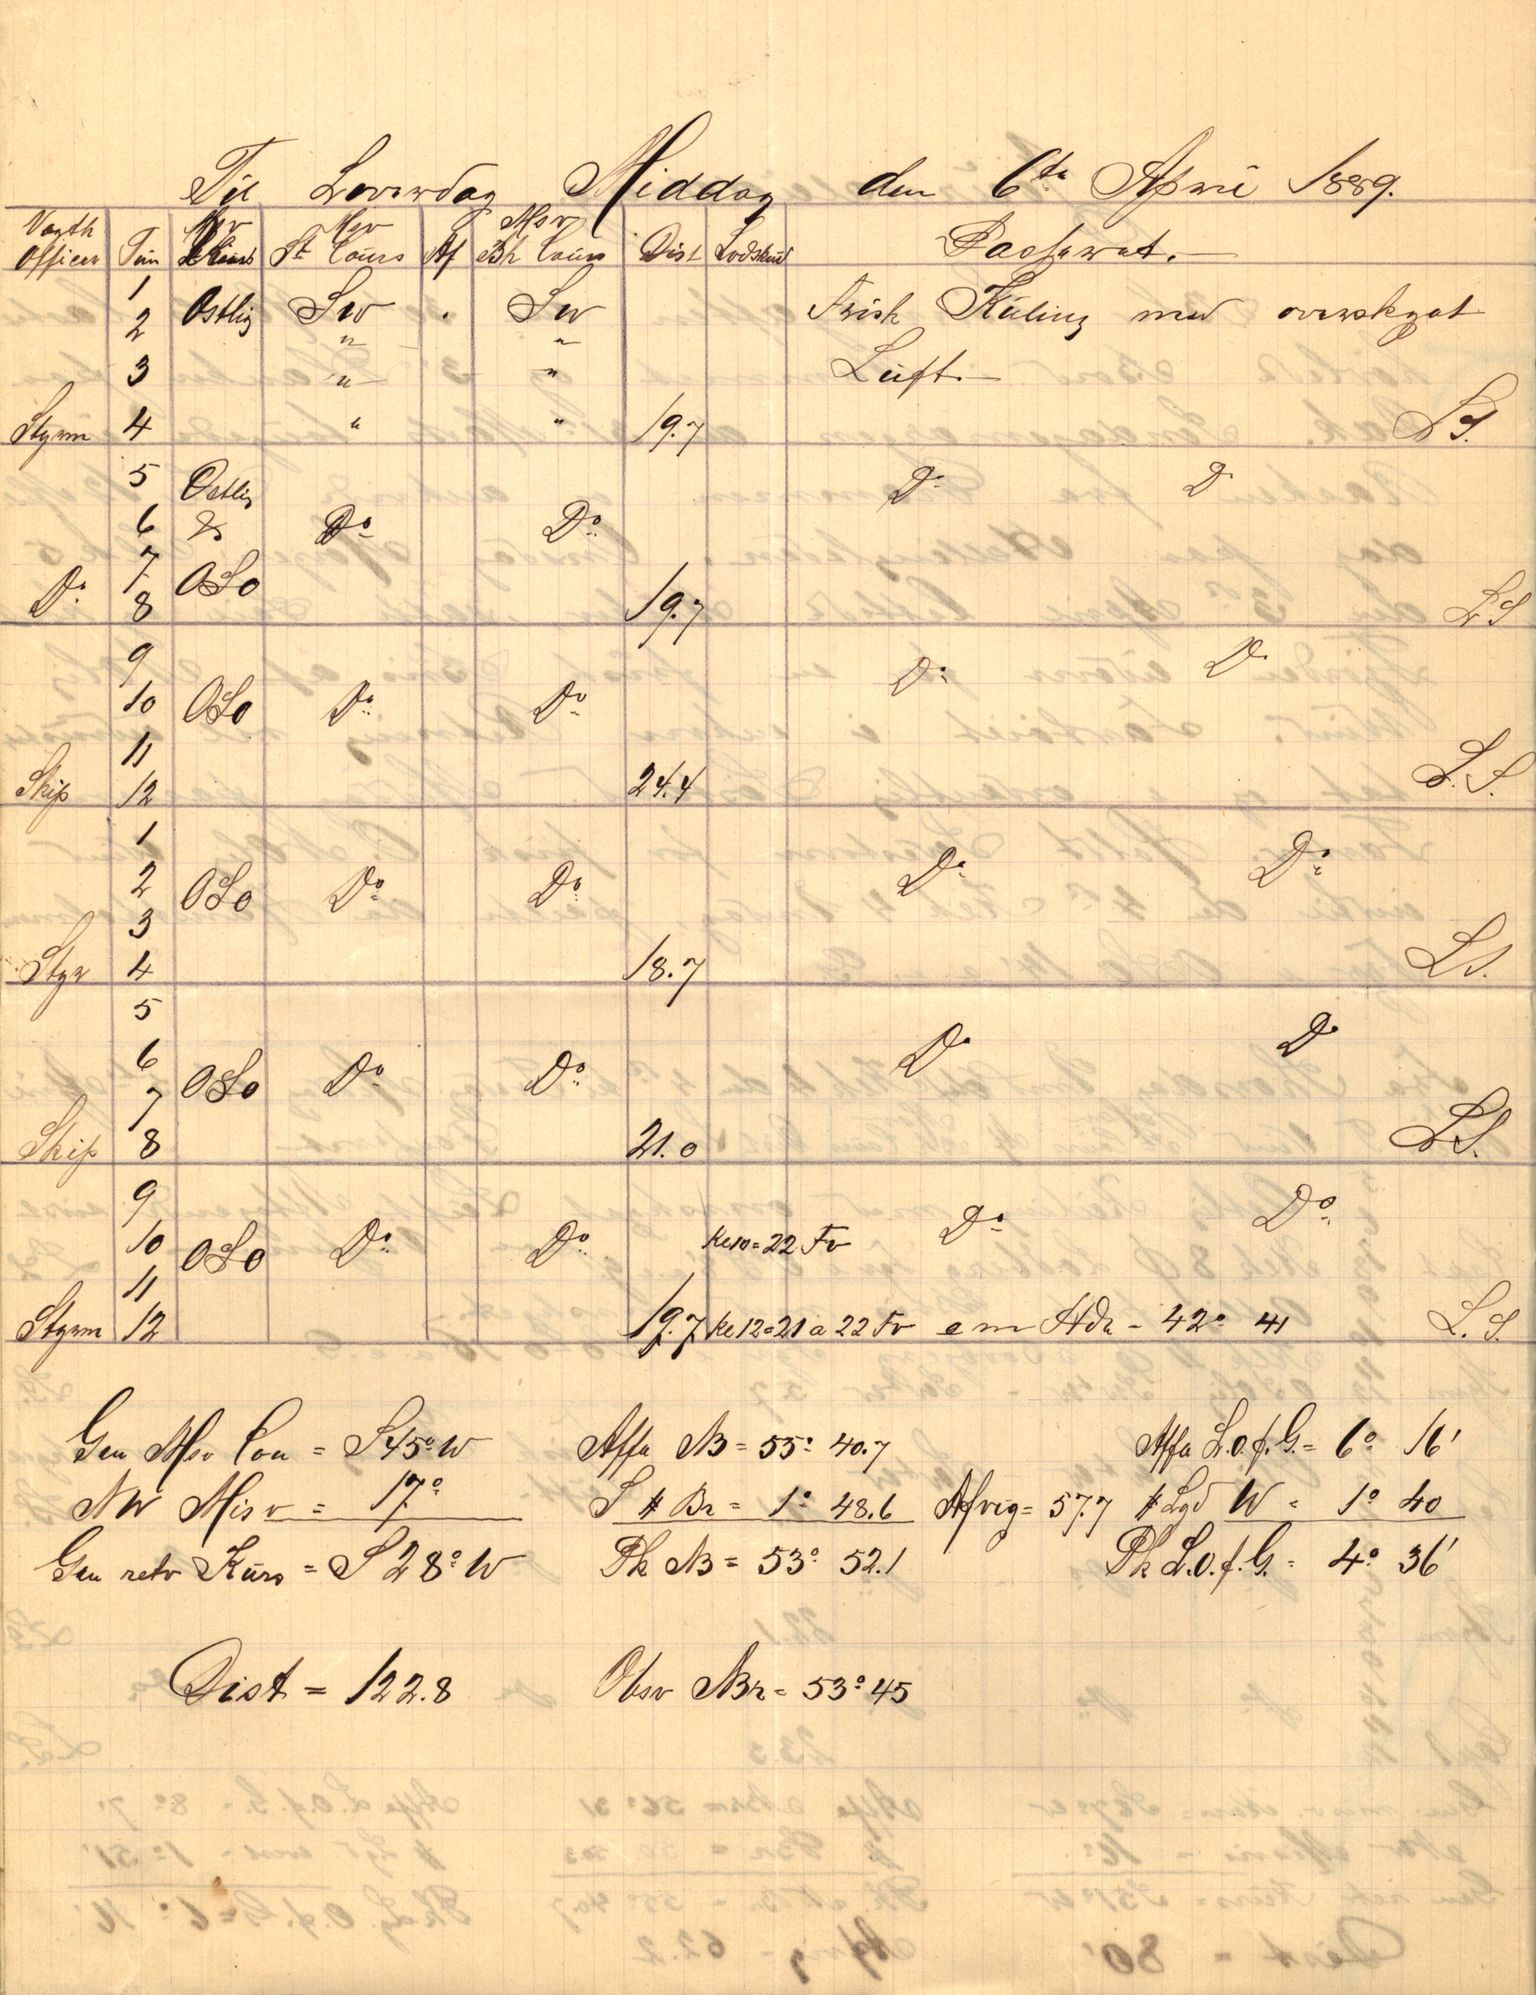 Til Loverdag Middag den 6te April 1889.
Vagth Officer Tim Msv Msv St Cours Af Msv Bb Cours Dist Lodskud Passerat.
1
2 Ostlig Sw . Sw Frisk Kuling med overskyat
3 " " Luft.
Styrm 4 " " 19.7 L S.
5 Ostlig Do Do
6 & Do Do
7
Do 8 OSo 19.7 L S
9 Do Do
10 OSo Do Do
11
Skip 12 24.4 L. S.
1
2 OSo Do Do Do Do
3
Styr 4 18.7 L S.
5
6 OSo Do Do Do Do
7
Skip 8 21.0 L S.
9
10 OSo Do Do Kl 10 = 22 Fv Do Do
11
Styrm 12 19.7 Kl 12 = 21 a 22 Fv - 42° 41 L. S.
Gen Msv Cou = S 45° W Affa NB = 55° 40.7 Affa L.O.f.G. = 6° 16'
NW Misv = 17° S # Br = 1° 48.6 Afvig = 57.7 # Lgd W = 1° 40
Gen retv Kurs = S 28° W Pk NB = 53° 52.1 Pk L.O.f.G. = 4° 36'
Dist = 122.8 Obsv NBr = 53° 45